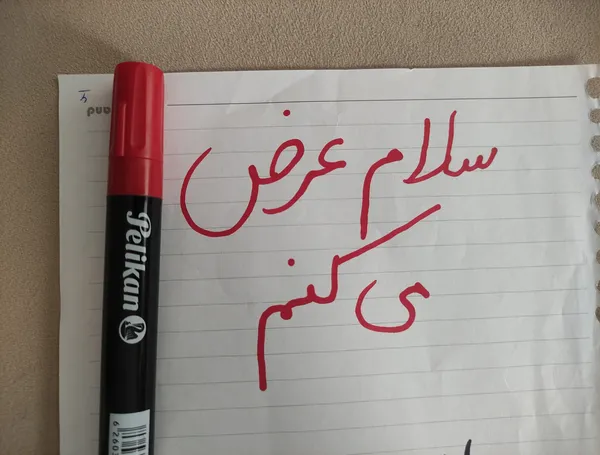 سلام عرض
می کنم
Pelikan